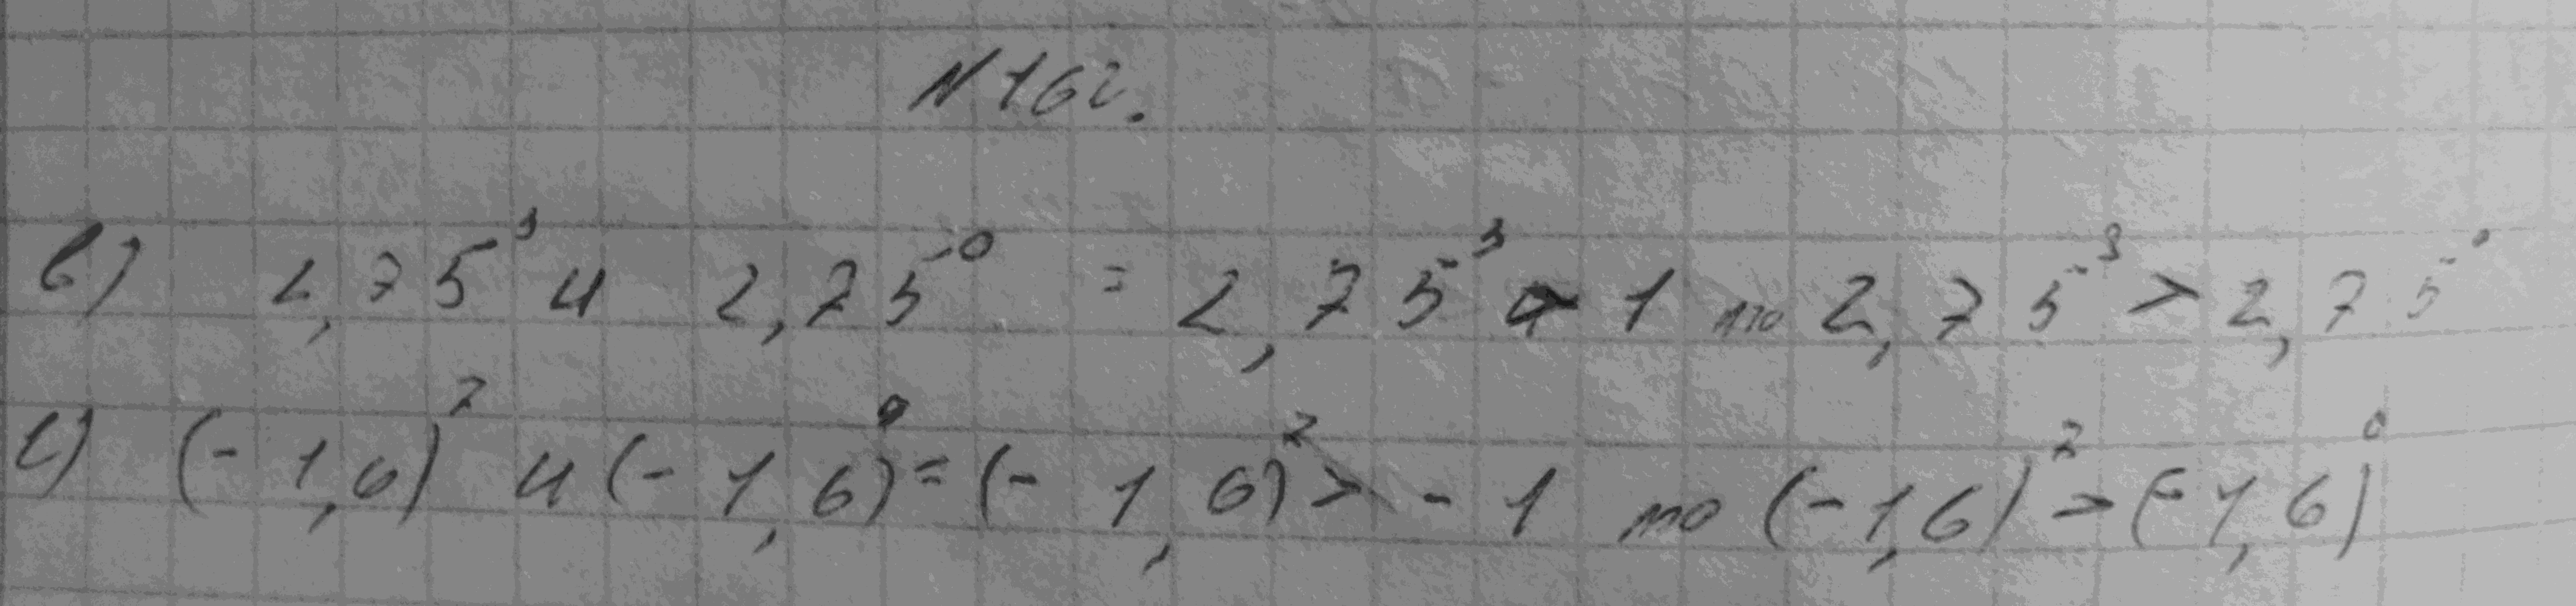 N 162.
в) 2,75³ и 2,75⁰ = 2,75³ > 1 то 2,75³ > 2,75⁰
с) (-1,6)² и (-1,6)⁰ = (-1,6)² > -1 то (-1,6)² > (-1,6)⁰